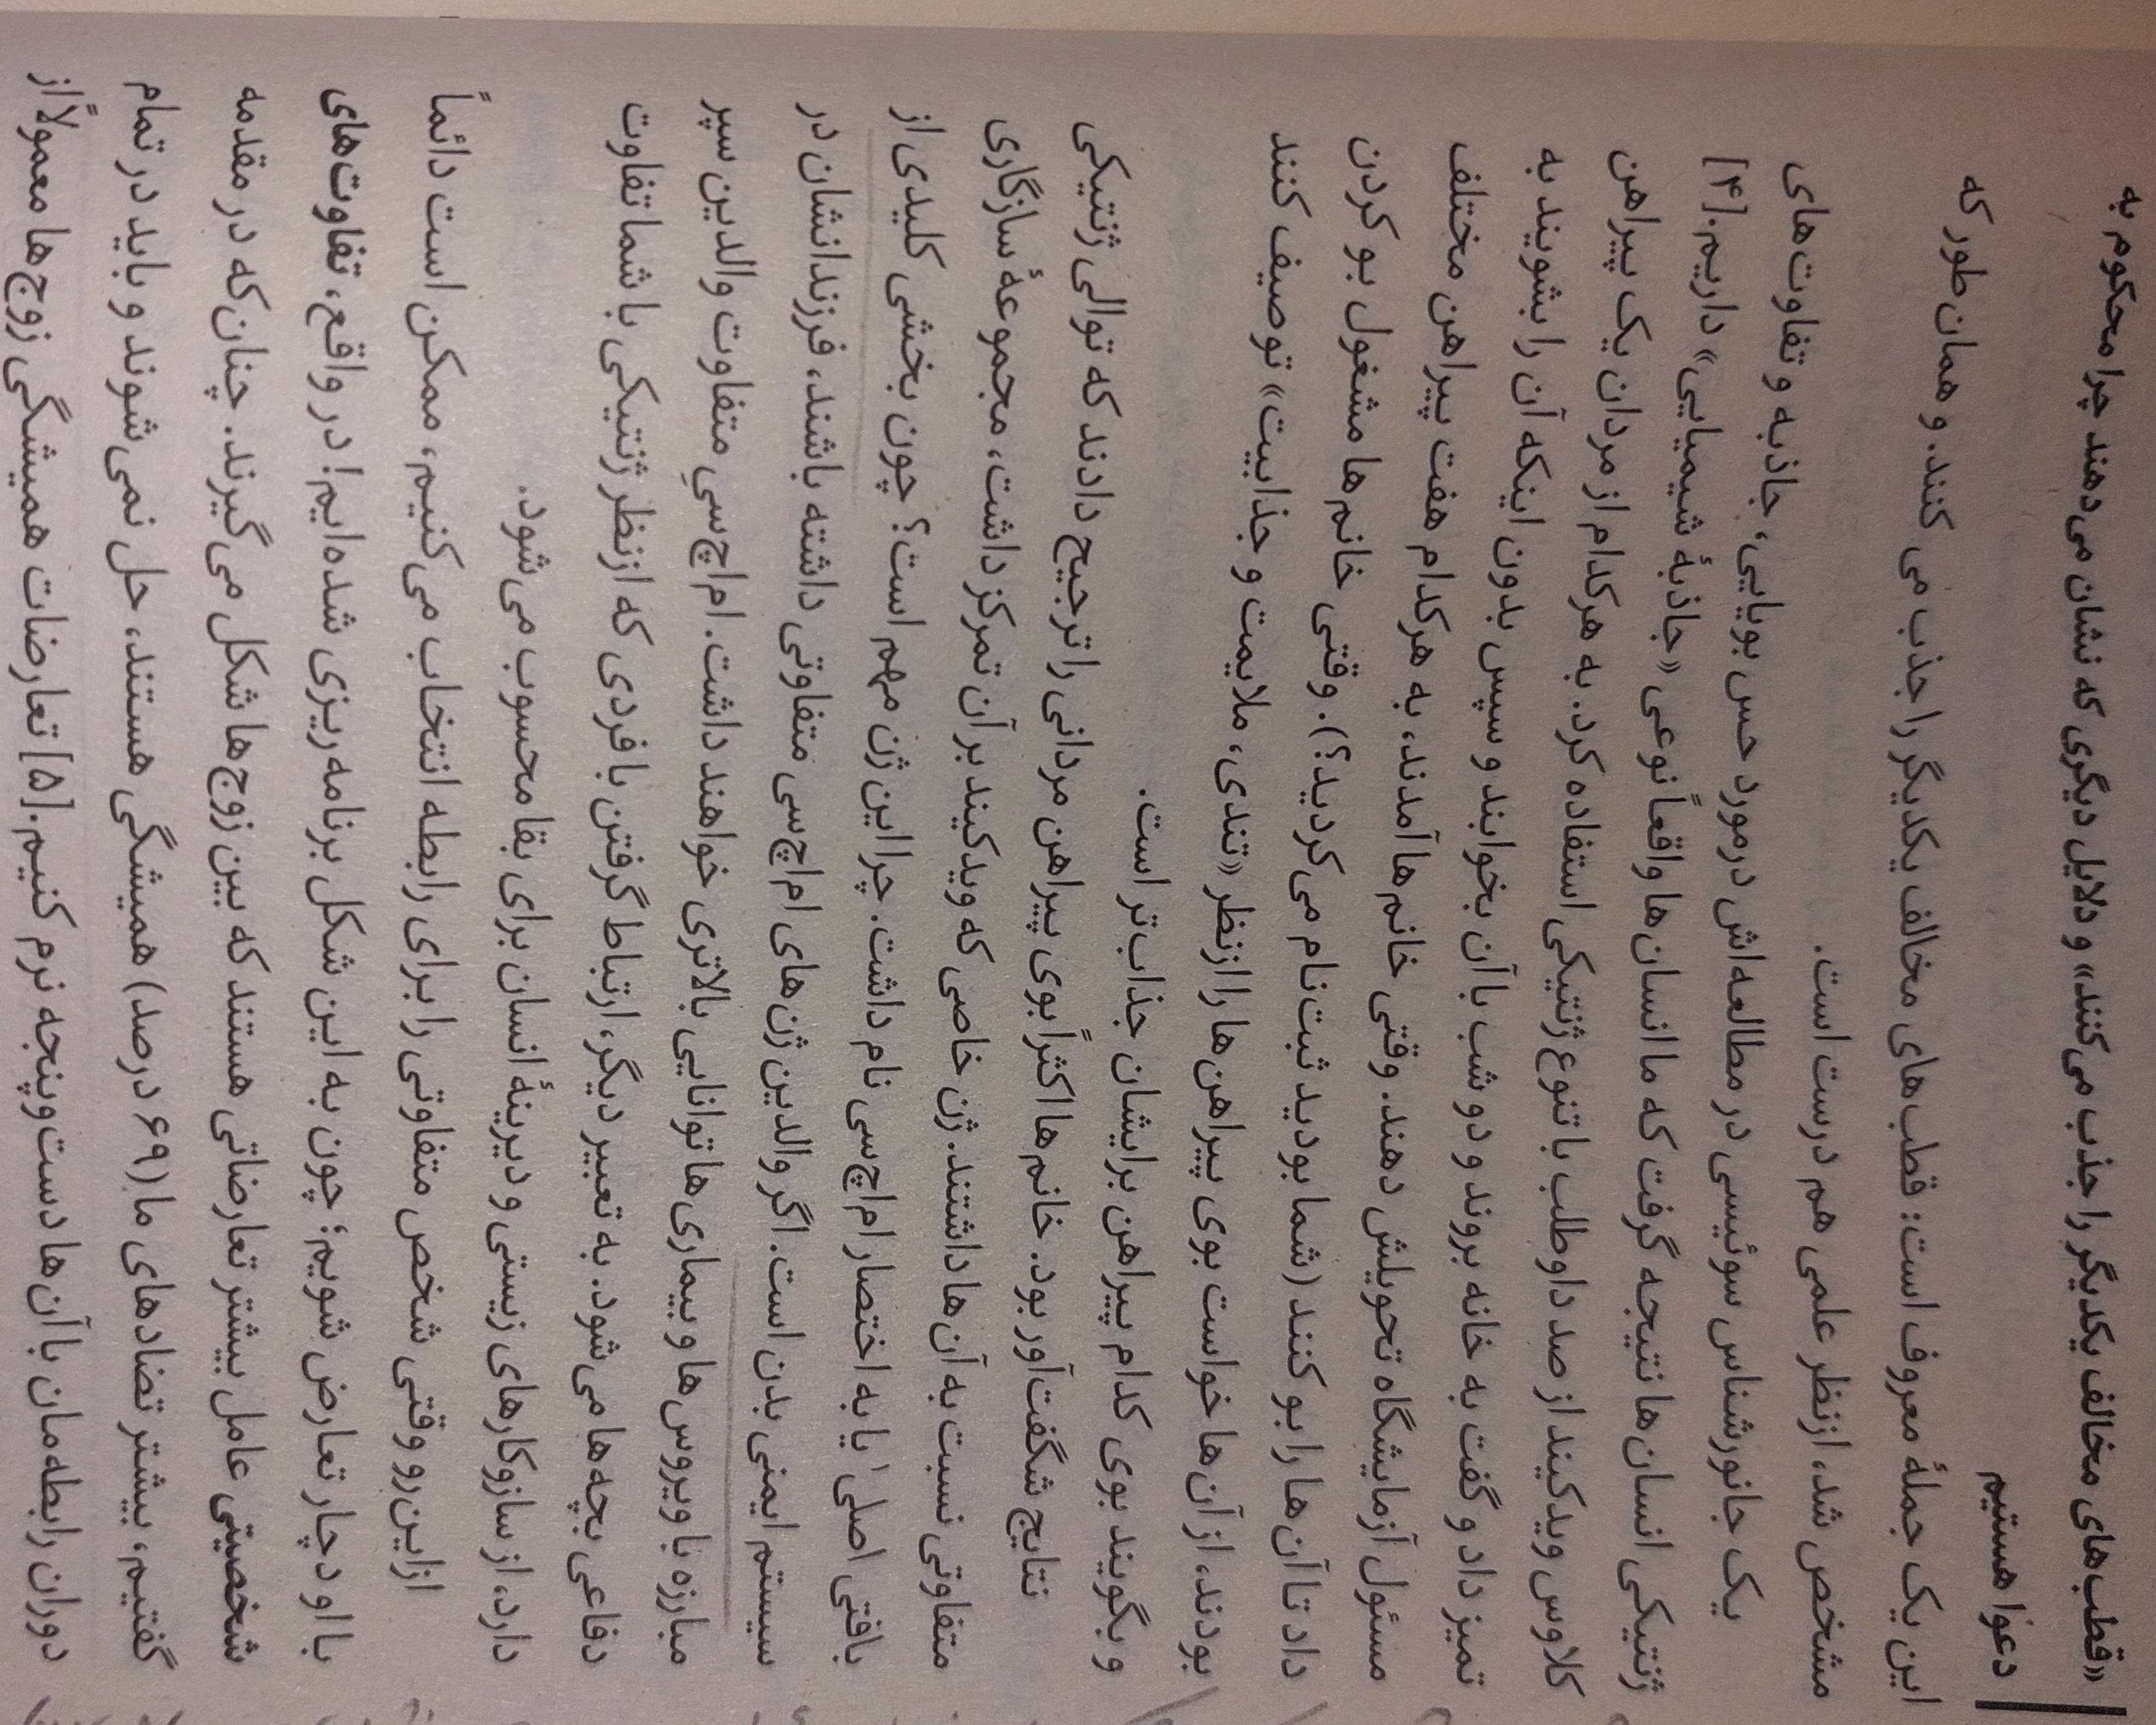 «قطب‌های مخالف یکدیگر را جذب می‌کنند» و دلایل دیگری که نشان می‌دهند چرا محکوم به
دعوا هستیم
این یک جملهٔ معروف است: قطب‌های مخالف یکدیگر را جذب می‌کنند. و همان‌طور که
مشخص شد، ازنظر علمی هم درست است.
یک جانورشناس سوئیسی در مطالعه‌اش درمورد حس بویایی، جاذبه و تفاوت‌های
ژنتیکی انسان‌ها نتیجه گرفت که ما انسان‌ها واقعاً نوعی «جاذبهٔ شیمیایی» داریم.[۴]
کلاوس ویدکیند از صد داوطلب با تنوع ژنتیکی استفاده کرد. به هرکدام از مردان یک پیراهن
تمیز داد و گفت به خانه بروند و دو شب با آن بخوابند و سپس بدون اینکه آن را بشویند به
مسئول آزمایشگاه تحویلش دهند. وقتی خانم‌ها آمدند، به هرکدام هفت پیراهن مختلف
داد تا آن‌ها را بو کنند (شما بودید ثبت‌نام می‌کردید؟). وقتی خانم‌ها مشغول بو کردن
بودند، از آن‌ها خواست بوی پیراهن‌ها را ازنظر «تندی، ملایمت و جذابیت» توصیف کنند
و بگویند بوی کدام پیراهن برایشان جذاب‌تر است.
نتایج شگفت‌آور بود. خانم‌ها اکثراً بوی پیراهن مردانی را ترجیح دادند که توالی ژنتیکی
متفاوتی نسبت به آن‌ها داشتند. ژن خاصی که ویدکیند بر آن تمرکز داشت، مجموعهٔ سازگاری
بافتی اصلی۱ یا به اختصار ام‌اچ‌سی نام داشت. چرا این ژن مهم است؟ چون بخشی کلیدی از
سیستم ایمنی بدن است. اگر والدین ژن‌های ام‌اچ‌سی متفاوتی داشته باشند، فرزندانشان در
مبارزه با ویروس‌ها و بیماری‌ها توانایی بالاتری خواهند داشت. ام‌اچ‌سیِ متفاوت والدین سپر
دفاعی بچه‌ها می‌شود. به تعبیر دیگر، ارتباط گرفتن با فردی که ازنظر ژنتیکی با شما تفاوت
دارد، از سازوکارهای زیستی و دیرینهٔ انسان برای بقا محسوب می‌شود.
ازاین‌رو وقتی شخص متفاوتی را برای رابطه انتخاب می‌کنیم، ممکن است دائماً
با او دچار تعارض شویم؛ چون به این شکل برنامه‌ریزی شده‌ایم! در واقع، تفاوت‌های
شخصیتی عامل بیشتر تعارضاتی هستند که بین زوج‌ها شکل می‌گیرند. چنان‌که در مقدمه
گفتیم، بیشتر تضادهای ما (۶۹ درصد) همیشگی هستند، حل نمی‌شوند و باید در تمام
دوران رابطه‌مان با آن‌ها دست‌وپنجه نرم کنیم.[۵] تعارضات همیشگی زوج‌ها معمولاً از